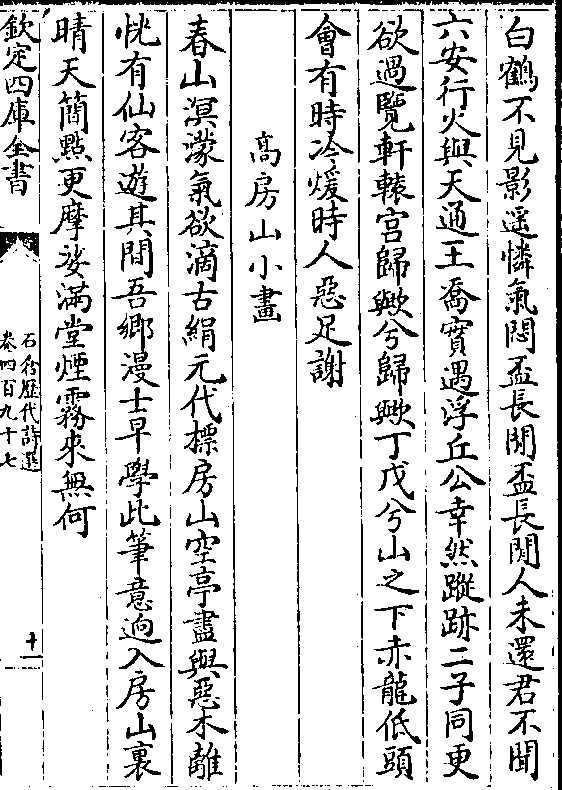 白鶴不見影遥憐氣悶盃長閒盃長閒人未還君不聞
六安行火與天通王喬實遇浮丘公幸然蹤跡二子同更
欲過覽軒轅宫歸歟兮歸歟丁戊兮山之下赤龍低頭
會有時冷煖時人惡足謝
高房山小畫
春山溟濛氣欲滴古絹元代標房山空亭盡與惡木離
恍有仙客遊其間吾鄉漫士早學此筆意逈入房山裏
晴天簡㸃更摩娑滿堂煙霧來無何
欽定四庫全書
石倉歷代詩選
卷四百九十七
十一